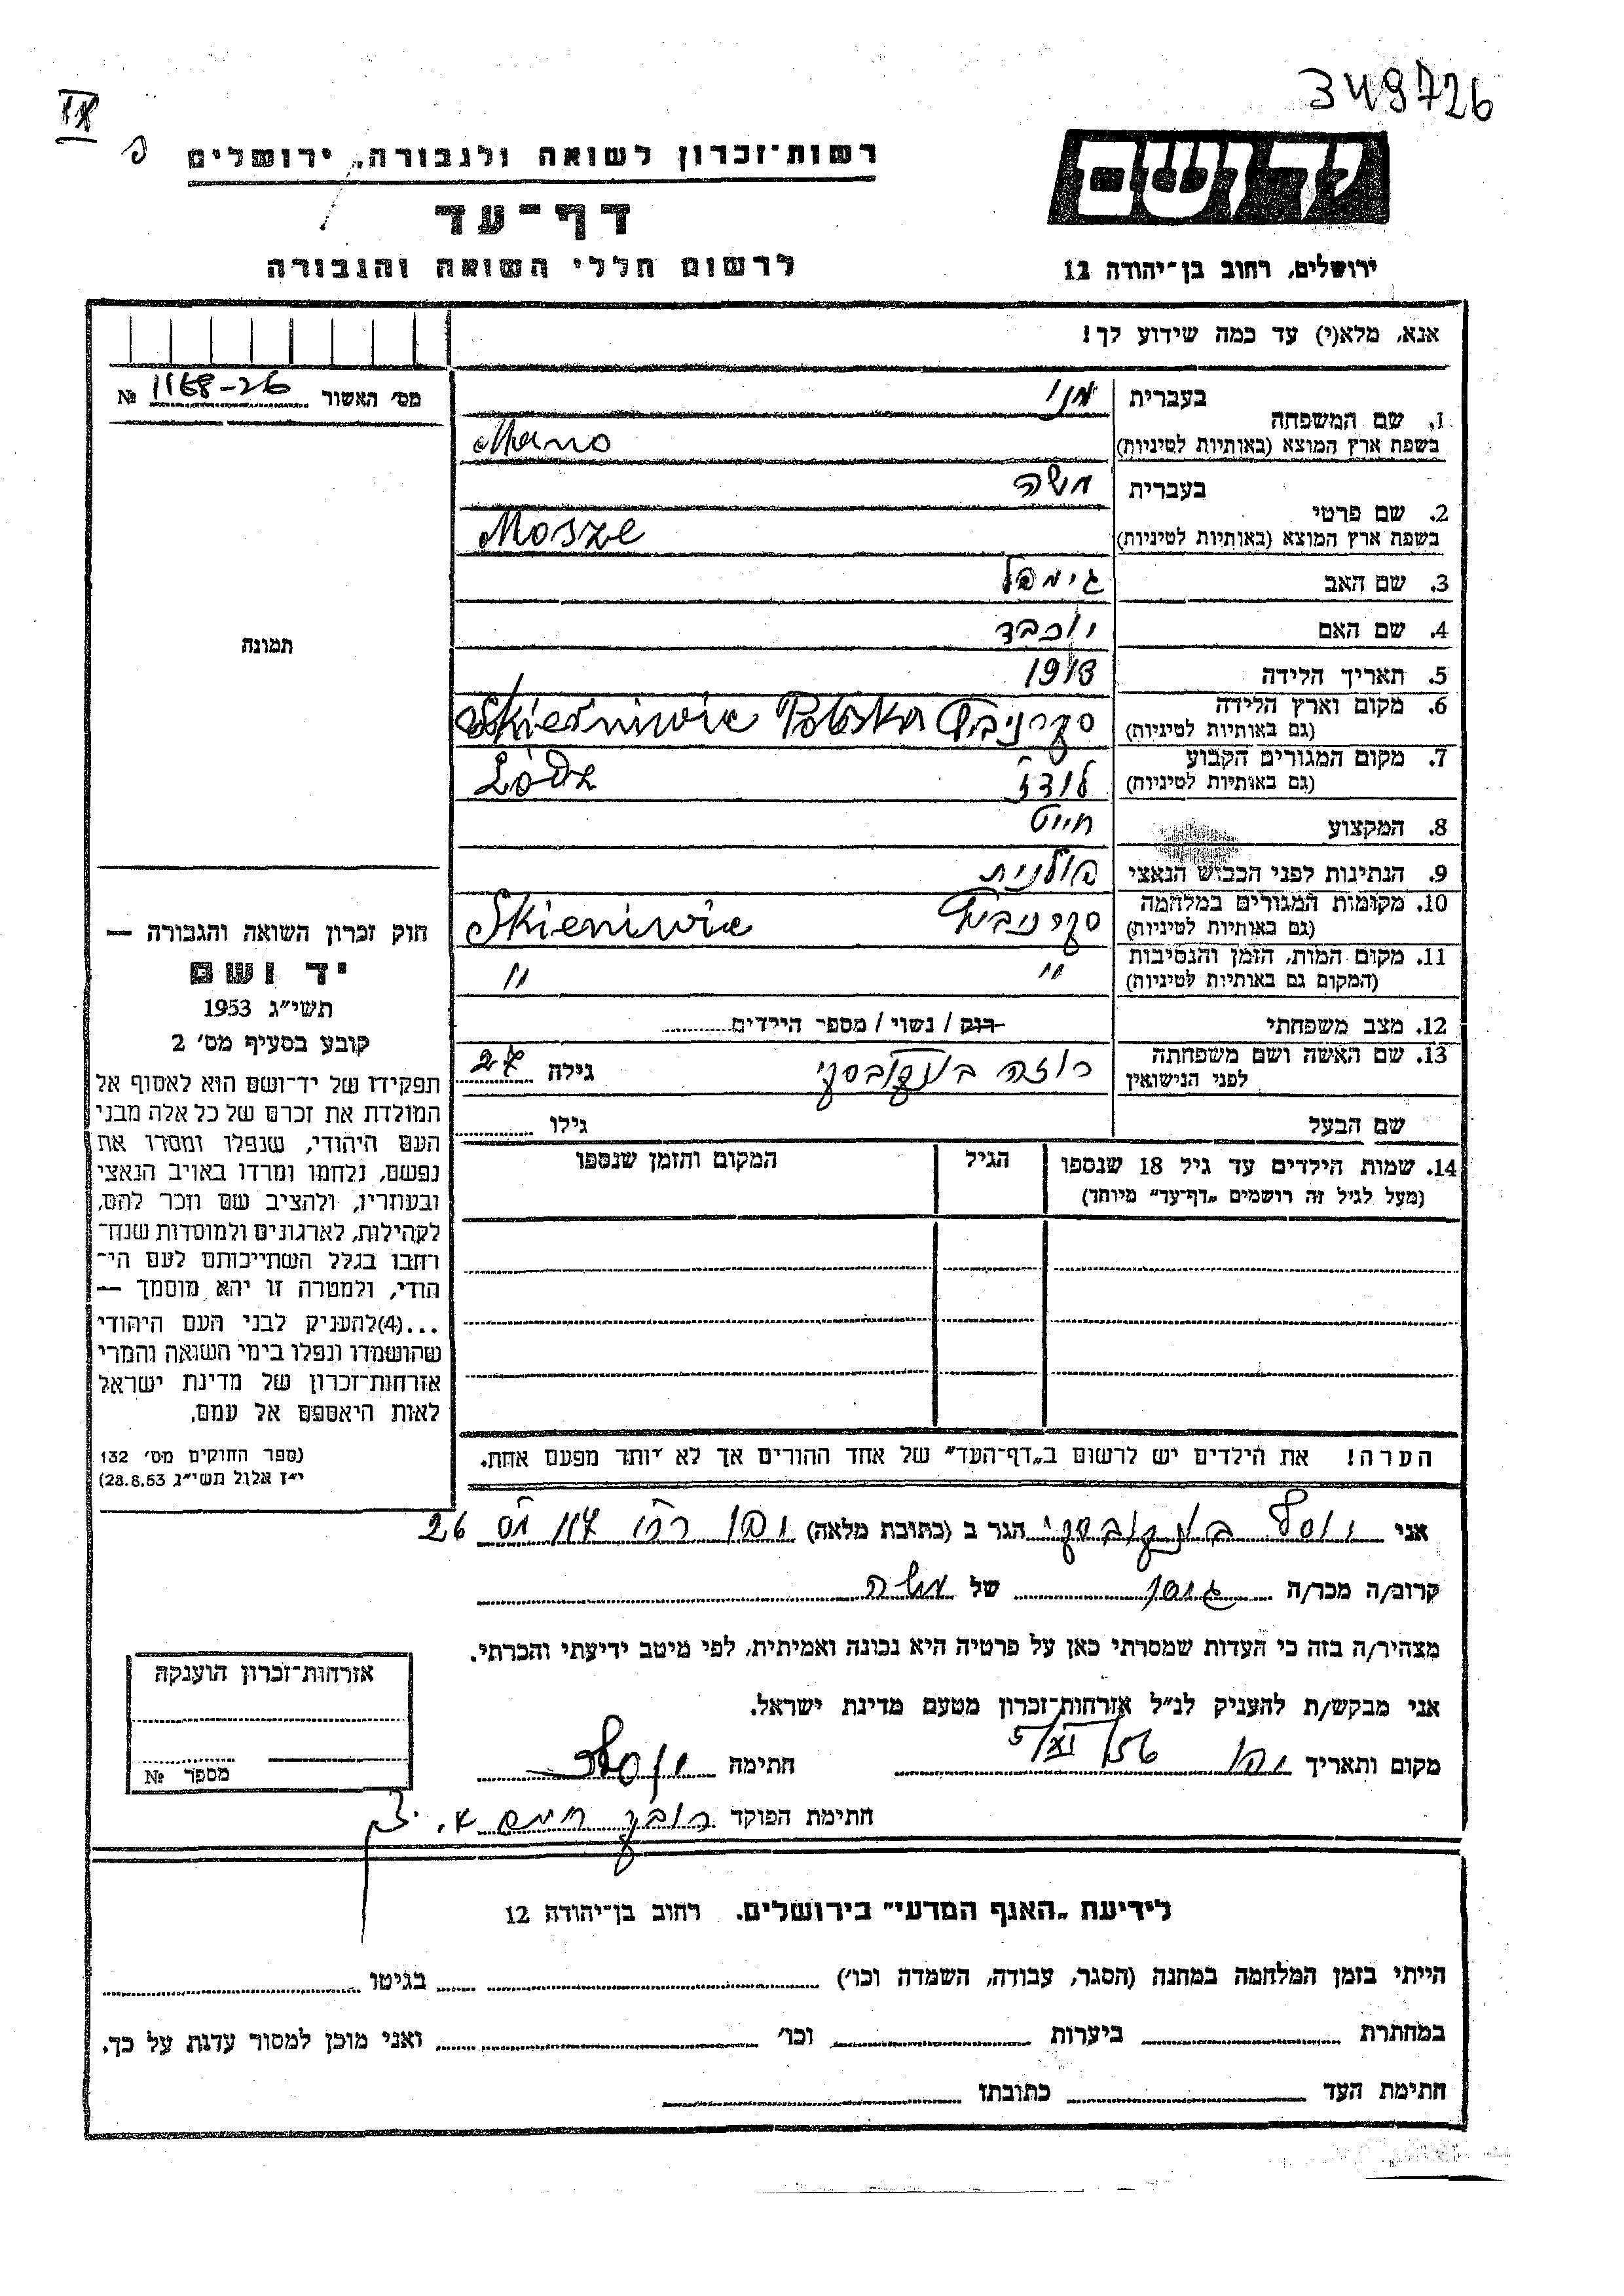 349726
IX
רשות־זכרון לשואה ולגבורה, ירושלים
יד ושם
דף־עד
לרשום חללי השואה והגבורה
ירושלים, רחוב בן־יהודה 12
אנא, מלא(י) עד כמה שידוע לך!
מס׳ האשור 1168-26 №
1. שם המשפחה
בעברית
בשפת ארץ המוצא (באותיות לטיניות)
2. שם פרטי
בעברית משה
בשפת ארץ המוצא (באותיות לטיניות) Mosze
3. שם האב גימפל
4. שם האם יוכבד
5. תאריך הלידה 1913
6. מקום וארץ הלידה
(גם באותיות לטיניות) Skierniwic Polska
7. מקום המגורים הקבוע
(גם באותיות לטיניות) לודז׳ Lódz
8. המקצוע חייט
9. הנתינות לפני הכבוש הנאצי פולנית
10. מקומות המגורים במלחמה
(גם באותיות לטיניות) Skieniwic
11. מקום המות, הזמן והנסיבות
(המקום גם באותיות לטיניות) " "
12. מצב משפחתי רוק / נשוי / מספר הילדים
13. שם האשה ושם משפחתה
לפני הנישואין רוזה גילה 27
שם הבעל גילו
14. שמות הילדים עד גיל 18 שנספו
(מעל לגיל זה רושמים „דף־עד" מיוחד)
הגיל
המקום והזמן שנספו
הערה! את הילדים יש לרשום ב„דף־העד" של אחד ההורים אך לא יותר מפעם אחת.
תמונה
חוק זכרון השואה והגבורה —
יד ושם
תשי״ג 1953
קובע בסעיף מס׳ 2
תפקידו של יד־ושם הוא לאסוף אל
המולדת את זכרם של כל אלה מבני
העם היהודי, שנפלו ומסרו את
נפשם, נלחמו ומרדו באויב הנאצי
ובעוזריו, ולהציב שם וזכר להם,
לקהילות, לארגונים ולמוסדות שנח־
רחבו בגלל השתייכותם לעם הי־
הודי, ולמטרה זו יהא מוסמך —
...(4)להעניק לבני העם היהודי
שהושמדו ונפלו בימי השואה והמרי
אזרחות־זכרון של מדינת ישראל
לאות היאספם אל עמם.
(ספר החוקים מס׳ 132
י״ז אלול תשי״ג 28.8.53)
אני יוסף הגר ב (כתובת מלאה) 26
קרוב/ה מכר/ה גיסו של משה
מצהיר/ה בזה כי העדות שמסרתי כאן על פרטיה היא נכונה ואמיתית, לפי מיטב ידיעתי והכרתי.
אני מבקש/ת להעניק לנ״ל אזרחות־זכרון מטעם מדינת ישראל.
מקום ותאריך 5/XI/56 חתימה
חתימת הפוקד
אזרחות־זכרון הוענקה
מספר №
לידיעת „האגף המדעי" בירושלים. רחוב בן־יהודה 12
הייתי בזמן המלחמה במחנה (הסגר, עבודה, השמדה וכו׳) בגיטו
במחתרת ביערות וכו׳ ואני מוכן למסור עדות על כך.
חתימת העד כתובתו